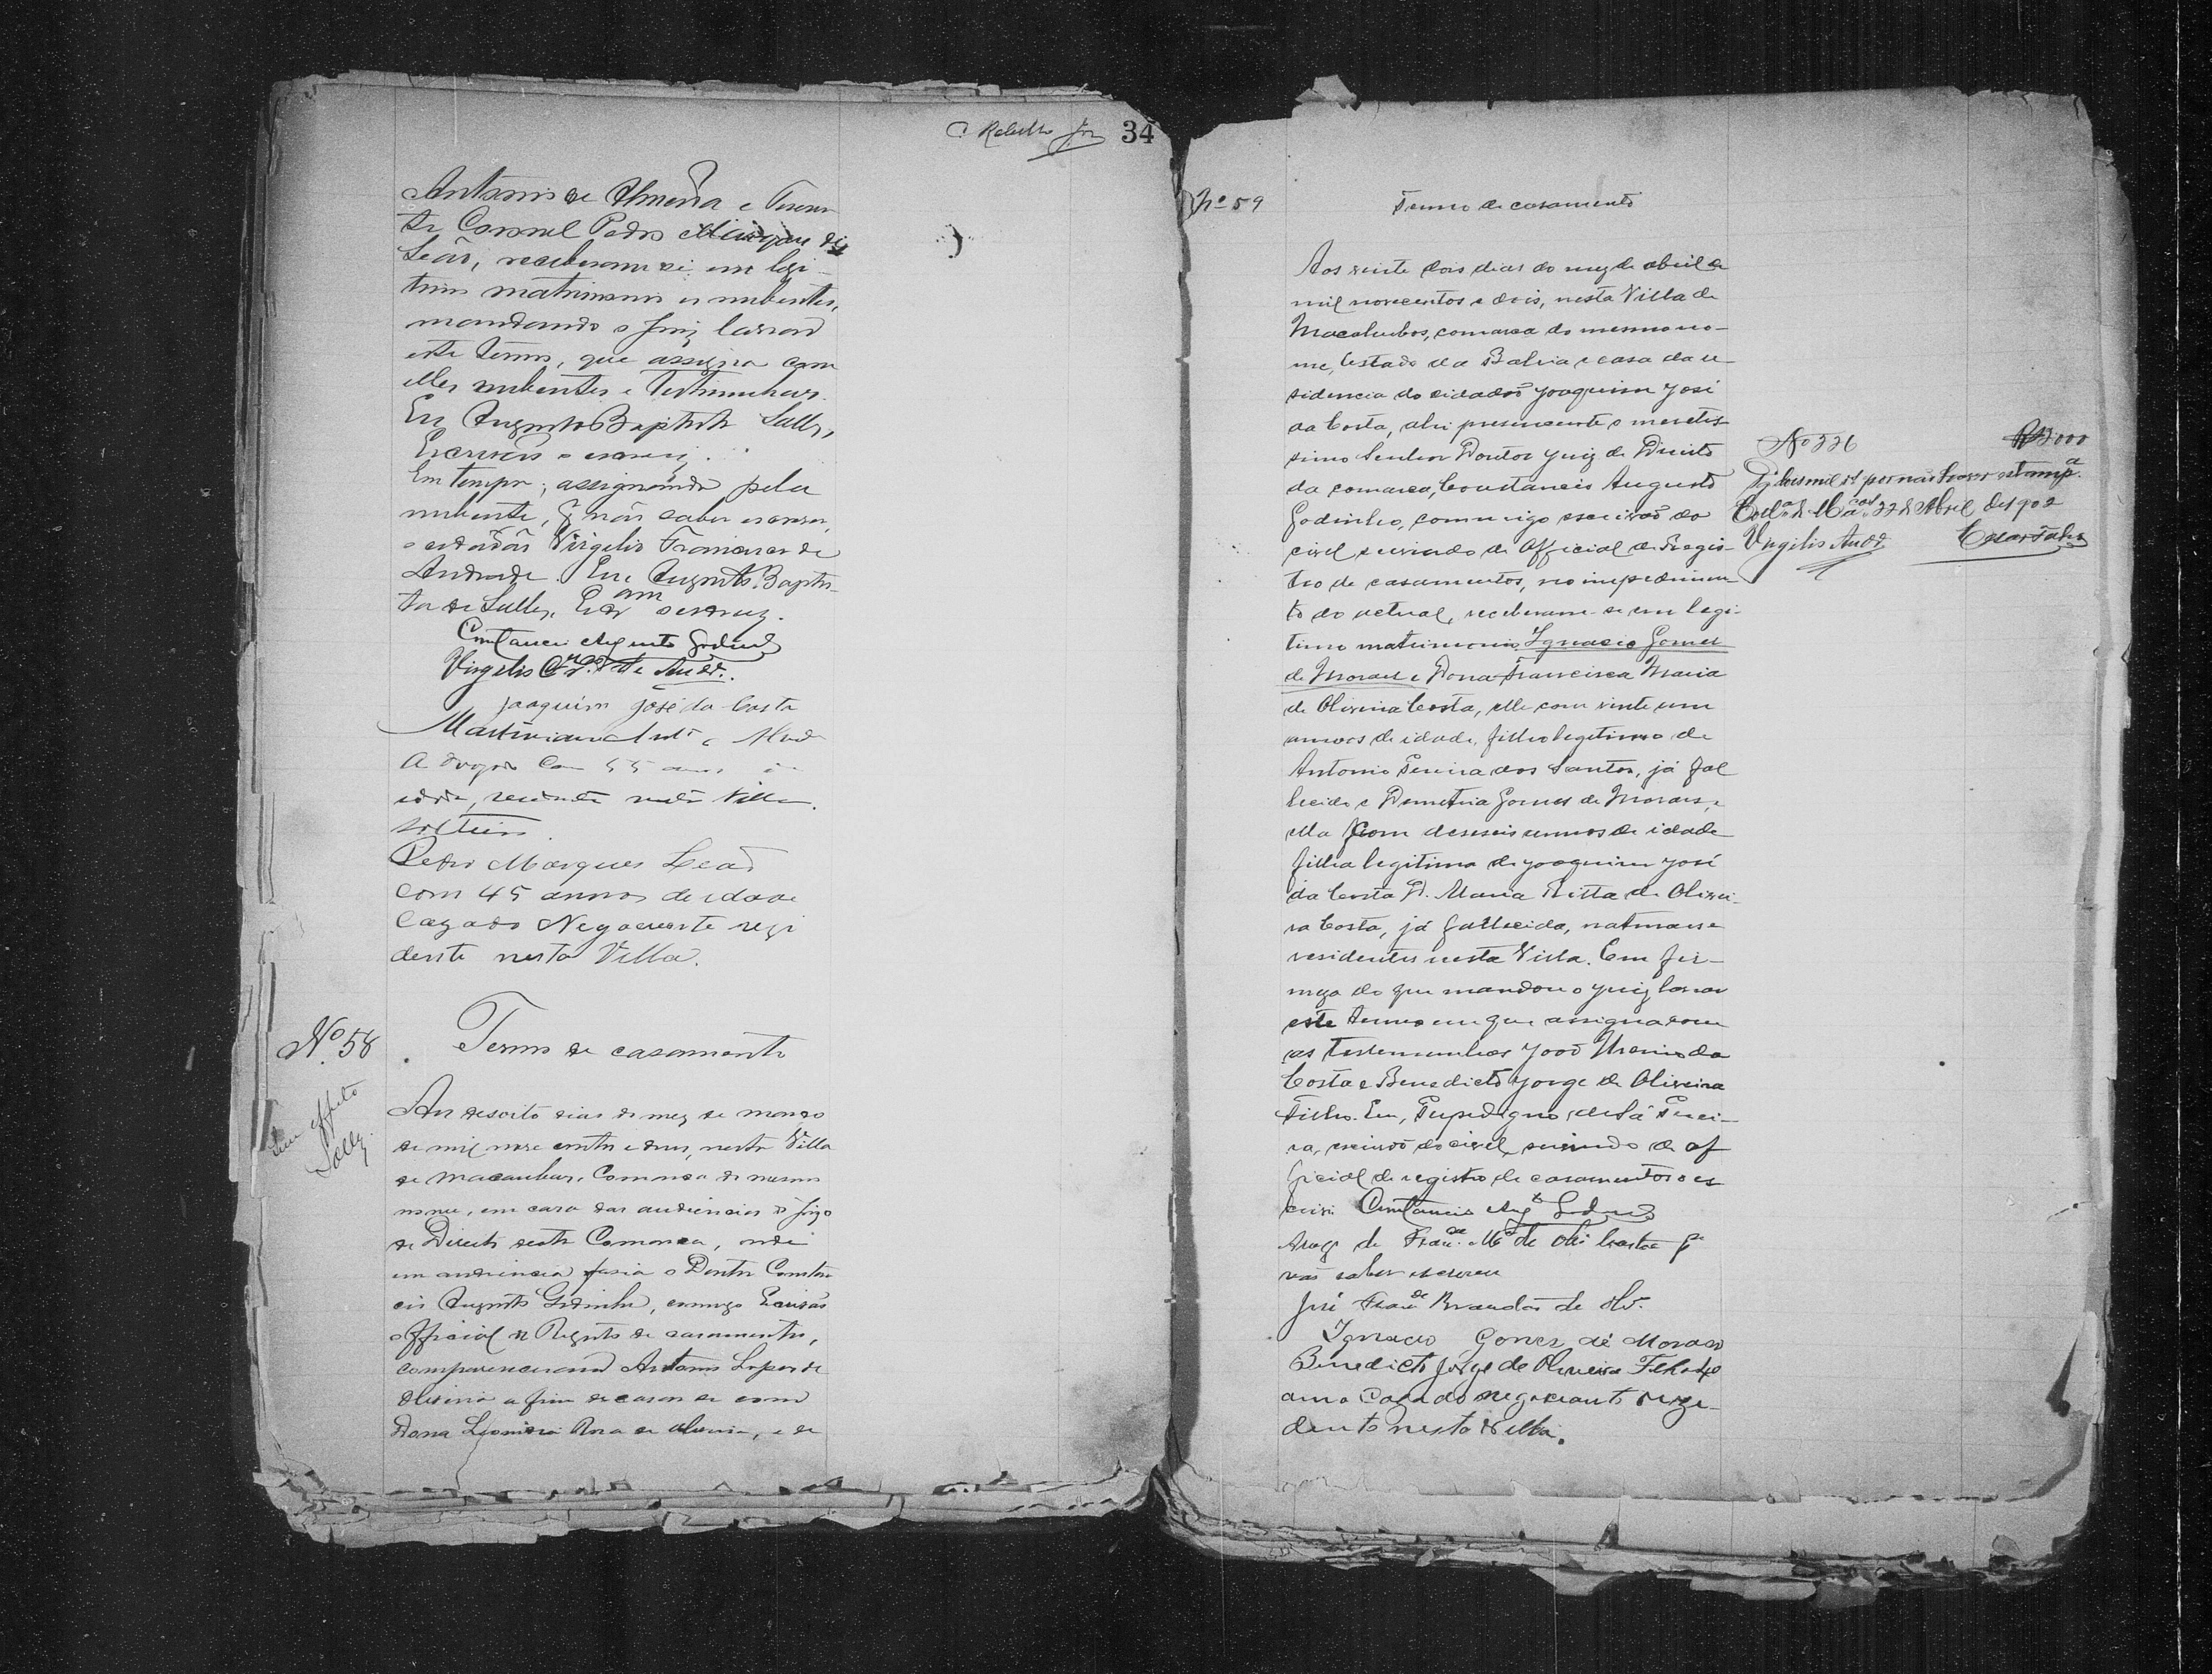 34
Antonio de Almeida e Tenen
te Coronel Pedro Marques de
Leão, receberam se em legi-
timo matrimonio os nubentes,
mandando o Juiz lavrar
este termo, que assigna com
elles nubentes e testimunhas.
Eu Augusto Baptista Salles,
Escrivão o escrevi.
Em tempo; assignando pela
nubente, q não saber escrever,
o cidadão Virgilio Francisco de
Andrade. Eu Augusto Baptis-
ta de Salles, Escr
Constancio Augusto Godinho
Virgilio de And.
Joaquim José da Costa
Martiniano Ant
Advogado Com 55 annos de
idade, residente nesta Villa.
solteiro.
Pedro Marques Leão
com 45 annos de idade
Cazado Negociante rezi
dente nesta Villa.
Nº 58
Termo de casamento
Sem effeito
Salles
Aos desoito dias do mez de março
de mil nove centos e dous, nesta Villa
de Macaubas, Comarca do mesmo
nome, em casa das audiencias do Juizo
de Direito desta Comarca, onde
em audiencia fasia o Doutor Constan
cio Augusto Godinho, commigo Escrivão
official do Registo de casamentos,
compareceram Antonio Lopes de
Oliveira a fim de casar se com
Dona Leonidia Rosa de Oliveira, e de
Nº 59
Termo de casamento
Aos vinte dois dias do mez de abril de
mil novecentos e dois, nesta Villa de
Macahubas, comarca do mesmo no-
me, Estado da Bahia e casa da re-
sidencia do cidadão Joaquim José
da Costa, ahi presencente o meretis
simo Senhor Doutor Juiz de Direito
da comarca, Constancio Augusto
Godinho, commigo escrivão do
civel servindo de Official de Regis-
tro de casamentos, no impedimen
to do actual, receberam-se em legi-
timo matrimonio Ignacio Gomes
de Moraes e Dona Francisca Maria
de Oliveira Costa, elle com vinte um
annos de idade, filho legitimo de
Antonio Pereira dos Santos, já fal
lecido e Demetria Gomes de Moraes, e
ella com deseseis annos de idade
filha legitima de Joaquim José
da Costa D. Maria Ritta de Olivei-
ra Costa, já fallecida, naturaes e
residentes nesta Villa. Em fir-
meza do que mandou o Juiz lavrar
este termo em que assigna com
as testemunhas João Urenio da
Costa e Benedicto Jorge de Oliveira
Filho. Eu, Perpedigno de Sá Perei-
ra, escrivão do civel, servindo de of
ficial de registro de casamentos o es
crivi. Constancio Aug.to Godinho
Arogo de Fran.ca M.a de Oli Costa p.r
não saber escrever
José Fran.co Brandão de Olv.
Ignacio Gomes de Moraes
Benedicto Jorge de Oliveira Filho
anno Casado negociante reze-
dente nesta Villa.
Nº 226
2000
Pg dous mil rs por não haver estamp.a
Coll.a de Mac.as 22 de Abril de 1902
Virgilio And.